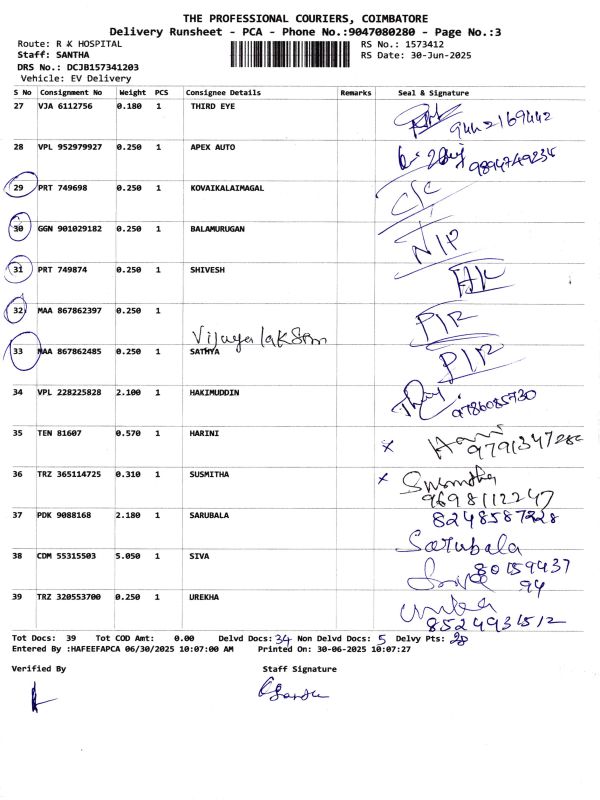 THE PROFESSIONAL COURIERS, COIMBATORE
Delivery Runsheet - PCA - Phone No.:9047080280 - Page No.:3
Route: R K HOSPITAL
Staff: SANTHA
DRS No.: DCJB157341203
Vehicle: EV Delivery
RS No.: 1573412
RS Date: 30-Jun-2025
S No Consignment No Weight PCS Consignee Details Remarks Seal & Signature
27 VJA 6112756 0.180 1 THIRD EYE 9442169442
28 VPL 952979927 0.250 1 APEX AUTO 9894749234
29 PRT 749698 0.250 1 KOVAIKALAIMAGAL C/C
30 GGN 901029182 0.250 1 BALAMURUGAN N/P
31 PRT 749874 0.250 1 SHIVESH
32 MAA 867862397 0.250 1 P/R
Vijayalakshmi
33 MAA 867862485 0.250 1 SATHYA P/R
34 VPL 228225828 2.100 1 HAKIMUDDIN 9786085730
35 TEN 81607 0.570 1 HARINI x Harini
9791347280
36 TRZ 365114725 0.310 1 SUSMITHA x Susmitha
9698112247
37 PDK 9088168 2.180 1 SARUBALA 8248587228
Sarubala
38 CDM 55315503 5.050 1 SIVA 80159437
94
39 TRZ 320553700 0.250 1 UREKHA
8524931512
Tot Docs: 39 Tot COD Amt: 0.00 Delvd Docs: 34 Non Delvd Docs: 5 Delvy Pts: 28
Entered By :HAFEEFAPCA 06/30/2025 10:07:00 AM Printed On: 30-06-2025 10:07:27
Verified By Staff Signature